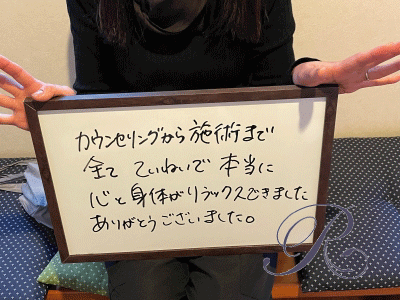 カウンセリングから施術まで
全て ていねいで 本当に
心と身体がリラックスできました
ありがとうございました。
R